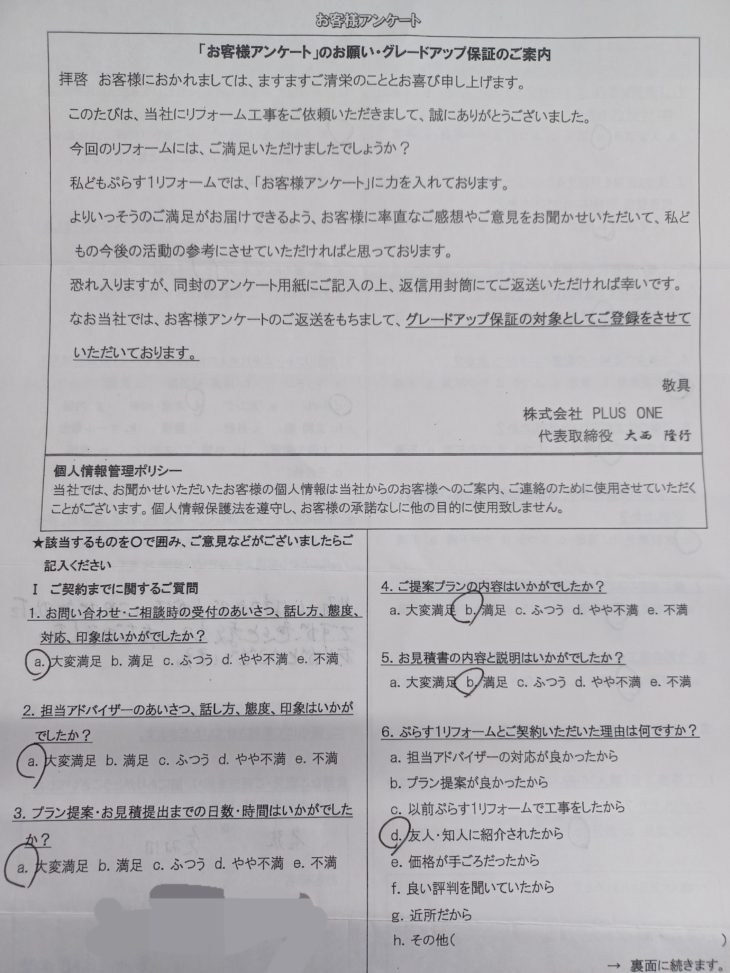 お客様アンケート
「お客様アンケート」のお願い・グレードアップ保証のご案内
拝啓　お客様におかれましては、ますますご清栄のこととお喜び申し上げます。
このたびは、当社にリフォーム工事をご依頼いただきまして、誠にありがとうございました。
今回のリフォームには、ご満足いただけましたでしょうか？
私どもぷらす1リフォームでは、「お客様アンケート」に力を入れております。
よりいっそうのご満足がお届けできるよう、お客様に率直なご感想やご意見をお聞かせいただいて、私ど
もの今後の活動の参考にさせていただければと思っております。
恐れ入りますが、同封のアンケート用紙にご記入の上、返信用封筒にてご返送いただければ幸いです。
なお当社では、お客様アンケートのご返送をもちまして、グレードアップ保証の対象としてご登録をさせて
いただいております。
敬具
株式会社 PLUS ONE
代表取締役 大西 隆行
個人情報管理ポリシー
当社では、お聞かせいただいたお客様の個人情報は当社からのお客様へのご案内、ご連絡のために使用させていただく
ことがございます。個人情報保護法を遵守し、お客様の承諾なしに他の目的に使用致しません。
★該当するものを〇で囲み、ご意見などがございましたらご
記入ください
Ⅰ ご契約までに関するご質問
1. お問い合わせ・ご相談時の受付のあいさつ、話し方、態度、
対応、印象はいかがでしたか？
a. 大変満足 b. 満足 c. ふつう d. やや不満 e. 不満
2. 担当アドバイザーのあいさつ、話し方、態度、印象はいかが
でしたか？
a. 大変満足 b. 満足 c. ふつう d. やや不満 e. 不満
3. プラン提案・お見積提出までの日数・時間はいかがでした
か？
a. 大変満足 b. 満足 c. ふつう d. やや不満 e. 不満
4. ご提案プランの内容はいかがでしたか？
a. 大変満足 b. 満足 c. ふつう d. やや不満 e. 不満
5. お見積書の内容と説明はいかがでしたか？
a. 大変満足 b. 満足 c. ふつう d. やや不満 e. 不満
6. ぷらす1リフォームとご契約いただいた理由は何ですか？
a. 担当アドバイザーの対応が良かったから
b. プラン提案が良かったから
c. 以前ぷらす1リフォームで工事をしたから
d. 友人・知人に紹介されたから
e. 価格が手ごろだったから
f. 良い評判を聞いていたから
g. 近所だから
h. その他( )
→ 裏面に続きます。